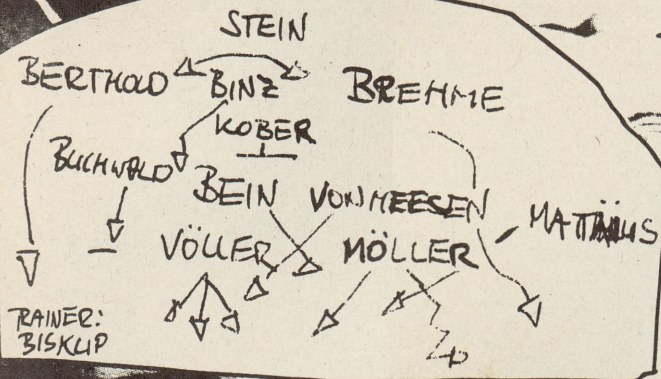 STEIN
BERTHOLD BINZ BREHME
KOBER
BUCHWALD
BEIN VON HEESEN
MATTHÄUS
VÖLLER MÖLLER
TRAINER:
BISKUP